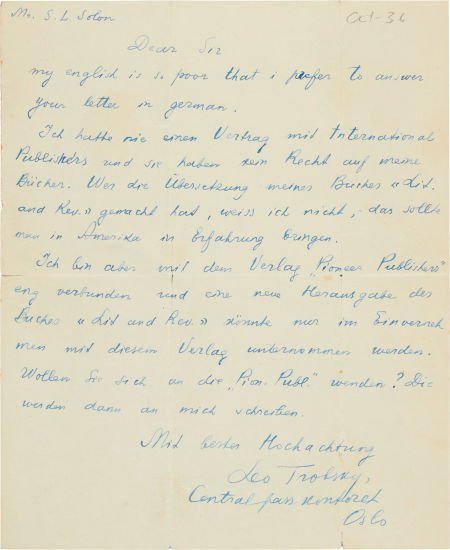 Mr. S. L. Solon
Oct-36
Dear Sir
my english is so poor that i prefer to answer
your letter in german.
Ich hatte nie einen Vertrag mit International
Publishers und sie haben kein Recht auf meine
Bücher. Wer die Übersetzung meines Buches „Lit.
and Rev.» gemacht hat, weiss ich nicht, das sollte
man in Amerika in Erfahrung bringen.
Ich bin aber mit dem Verlag „Pioneer Publishers"
eng verbunden und eine neue Herausgabe des
Buches „Lit and Rev.» könnte nur im Einverneh
men mit diesem Verlag unternommen werden.
Wollen Sie sich an die „Pion. Publ." wenden? Die
werden dann an mich schreiben.
Mit bester Hochachtung
Leo Trotsky,
Centralpasskontoret
Oslo